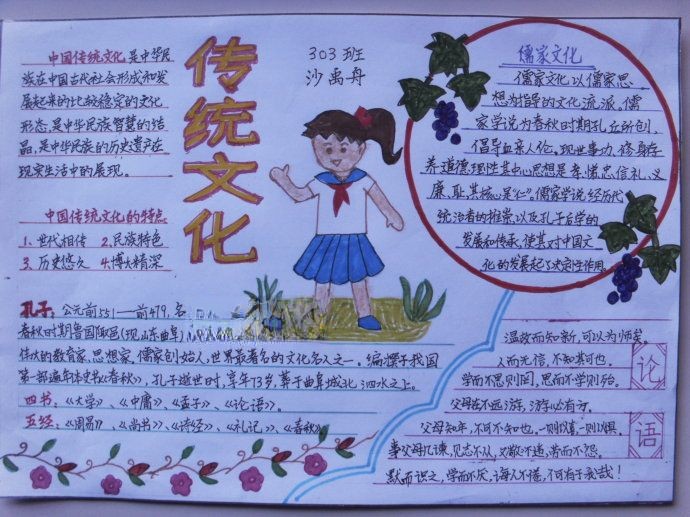 中国传统文化是中华民
族在中国古代社会形成和发
展起来的比较稳定的文化
形态,是中华民族智慧的结
晶,是中华民族的历史遗产在
现实生活中的展现。
中国传统文化的特点
1、世代相传 2、民族特色
3、历史悠久 4、博大精深
传统文化
303班
沙禹舟
儒家文化
儒家文化以儒家思
想为指导的文化流派。儒
家学说为春秋时期孔丘所创,
倡导血亲人伦、现世事功、修身存
养、道德理性其中心思想是孝、悌、忠、信、礼、义
廉、耻,其核心是“仁”。儒家学说经历代
统治者的推崇,以及孔子后学的
发展和传承,使其对中国文
化的发展起了决定性作用。
孔子:公元前551——前479,名
春秋时期鲁国陬邑(现山东曲阜)
伟大的教育家、思想家、儒家创始人,世界最著名的文化名人之一。编撰了我国
第一部编年体史书《春秋》,孔子逝世时,享年73岁,葬于曲阜城北泗水之上。
四书:《大学》、《中庸》、《孟子》、《论语》。
五经:《周易》、《尚书》、《诗经》、《礼记》、《春秋》
论语
温故而知新,可以为师矣。
人而无信,不知其可也。
学而不思则罔,思而不学则殆。
父母在不远游,游必有方。
父母知年,不可不知也,一则以喜,一则以惧。
事父母几谏,见志不从,又敬不违,劳而不怨。
默而识之,学而不厌,诲人不倦,何有于我哉!